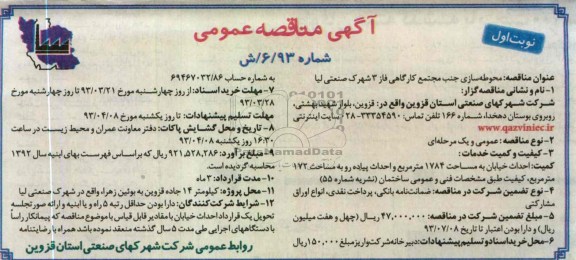 آگهی مناقصه عمومی
نوبت اول
شماره ۶/۹۳/ش
عنوان مناقصه: محوطه‌سازی جنب مجتمع کارگاهی فاز ۳ شهرک صنعتی لیا
۱- نام و نشانی مناقصه گزار:
شرکت شهرکهای صنعتی استان قزوین واقع در: قزوین، بلوار شهید بهشتی،
روبروی بوستان دهخدا، شماره ۱۶۶ تلفن تماس: ۳۳۳۵۴۵۹۰-۰۲۸ سایت اینترنتی
www.qazviniec.ir
۲- نوع مناقصه: عمومی و یک مرحله‌ای
۳- کیفیت و کمیت خدمات:
کمیت: احداث خیابان به مساحت ۱۷۸۴ مترمربع و احداث پیاده رو به مساحت ۱۷۲
مترمربع، کیفیت طبق مشخصات فنی و عمومی ساختمان (نشریه شماره ۵۵)
۴- نوع تضمین شرکت در مناقصه: ضمانت‌نامه بانکی، پرداخت نقدی، انواع اوراق
مشارکتی
۵- مبلغ تضمین شرکت در مناقصه: ۴۷,۰۰۰,۰۰۰ ریـال (چهل و هفت میلیون
ریال) و دارا بودن اعتبار تا تاریخ ۹۳/۰۷/۰۸
۶- محل خرید اسناد و تسلیم پیشنهادات: دبیرخانه شرکت واریز مبلغ ۱۵۰,۰۰۰ ریال
به شماره حساب ۶۹۴۶۷۰۳۲/۸۶
۷- مهلت خرید اسناد: از روز چهارشنبه مورخ ۹۳/۰۳/۲۱ تا روز چهارشنبه مورخ
۹۳/۰۳/۲۸
مهلت تسلیم پیشنهادات: تا روز یکشنبه مورخ ۹۳/۰۴/۰۸
۸- تاریخ و محل گشایش پاکات: دفتر معاونت عمران و محیط زیست در ساعت
۱۶:۳۰ روز یکشنبه ۹۳/۰۴/۰۸
۹- مبلغ برآورد: ۹۲۱,۵۲۸,۲۸۶ ریال که براساس فهرست بهای ابنیه سال ۱۳۹۲
محاسبه گردیده است.
۱۰- مدت قرارداد: ۲ ماه
۱۱- محل پروژه: کیلومتر ۱۴ جاده قزوین به بوئین زهرا، واقع در شهرک صنعتی لیا
۱۲- شرایط شرکت‌کنندگان: دارا بودن حداقل رتبه ۵ راه و یا ابنیه و ارائه صورتجلسه
تحویل یک قرارداد احداث خیابان با مقادیر قابل قیاس با موضوع مناقصه که پیمانکار راساً
با دستگاههای اجرایی طی مدت ۵ سال گذشته منعقد نموده باشد همراه با رضایتنامه
روابط عمومی شرکت شهرکهای صنعتی استان قزوین